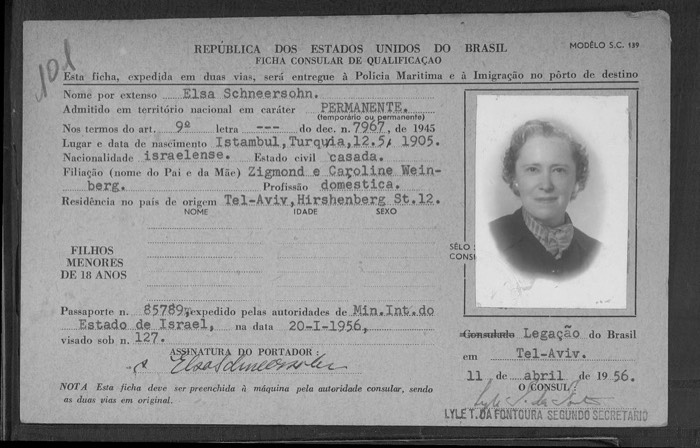 101
REPÚBLICA DOS ESTADOS UNIDOS DO BRASIL
MODÊLO S.C. 139
FICHA CONSULAR DE QUALIFICAÇÃO
Esta ficha, expedida em duas vias, será entregue à Polícia Marítima e à Imigração no pôrto de destino
Nome por extenso Elsa Schneersohn.
Admitido em território nacional em caráter PERMANENTE.
(temporário ou permanente)
Nos termos do art. 9º letra --- do dec. n. 7967, de 1945
Lugar e data de nascimento Istambul,Turquia,12.5, 1905.
Nacionalidade israelense. Estado civil casada.
Filiação (nome do Pai e da Mãe) Zigmond e Caroline Wein-
berg. Profissão domestica.
Residência no país de origem Tel-Aviv,Hirshenberg St.12.
NOME IDADE SEXO
FILHOS
MENORES
DE 18 ANOS
SÊLO
CONSU
Passaporte n. 85789, expedido pelas autoridades de Min.Int.do
Estado de Israel, na data 20-I-1956,
visado sob n. 127.
ASSINATURA DO PORTADOR:
Elsa Schneersohn
NOTA Esta ficha deve ser preenchida à máquina pela autoridade consular, sendo
as duas vias em original.
Consulado Legação do Brasil
em Tel-Aviv.
11 de abril de 1956.
O CONSUL:
LYLE T. DA FONTOURA SEGUNDO SECRETARIO